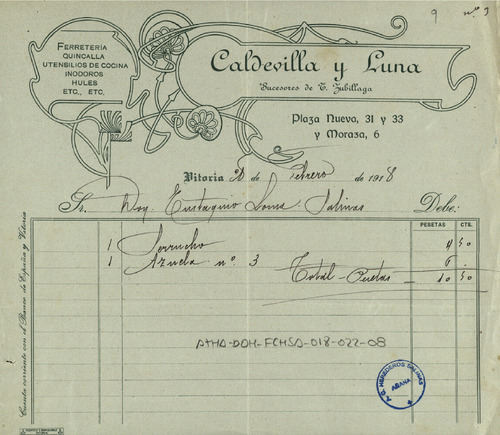 9 nº 3
FERRETERÍA
QUINCALLA
UTENSILIOS DE COCINA
INODOROS
HULES
ETC., ETC.
Caldevilla y Luna
Sucesores de T. Zubillaga
Plaza Nueva, 31 y 33
y Moraza, 6
Vitoria 20 de Febrero de 1918
Sr. Eustaquio Salinas Debe:
PESETAS CTS.
1 Serrucho 4 50
1 Azuela nº 3 6
Total - Pesetas 10 50
ATHA-DAH-FCHSA-018-022-08
A. G. HEREDEROS SALINAS
ABANA
Cuenta corriente con el Banco de España y Vitoria